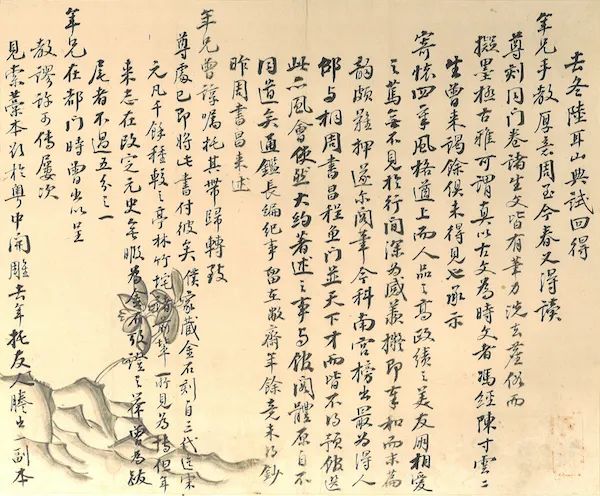 去冬陸耳山典試回得
年兄手教厚意周至今春又得讀
尊刻同門卷諸生文皆有筆力洗去俗而
擬墨極古雅可謂真以古文為時文者馮經陳寸雲二
生曾来謁餘俱未得見也承示
寄懷四章風格遒上而人品之高政績之美友朋相愛
之篤無不見於行間深為感羨擬即奉和而末篇
韵頗難押遂尔閣筆今科南宮榜出最為得人
邵与桐周書昌程魚門並天下才而皆不得預館選
此亦風會使然大約著述之事与館閣體原自不
同道矣通鑑長編紀事留在敝齋年餘竟未得鈔
昨周書昌来述
年兄曾諄嘱托其帶歸轉致
尊處已即將此書付彼矣僕家藏金石刻自三代迄宋
元凡千餘種較之亭林竹垞諸前輩所見為但年
来志在改定元史無暇為金石攷證之為跋
尾者不過五分之一
年兄在都門時曾出以呈
教謬許可傳屢次
見索藁本欲於粤中開雕去年托友人謄出一副本